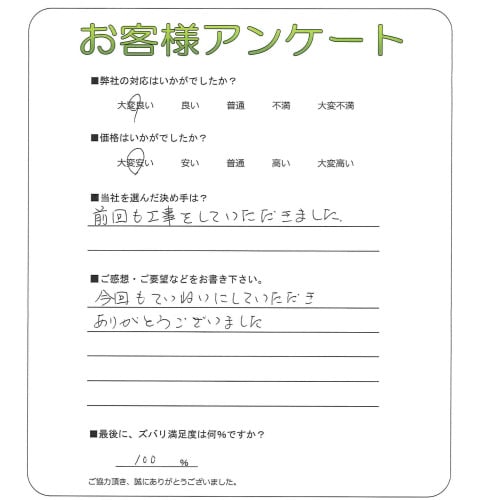 お客様アンケート
■弊社の対応はいかがでしたか？
大変良い 良い 普通 不満 大変不満
■価格はいかがでしたか？
大変安い 安い 普通 高い 大変高い
■当社を選んだ決め手は？
前回も工事をしていただきました、
■ご感想・ご要望などをお書き下さい。
今回もていねいにしていただき
ありがとうございました
■最後に、ズバリ満足度は何%ですか？
100 %
ご協力頂き、誠にありがとうございました。